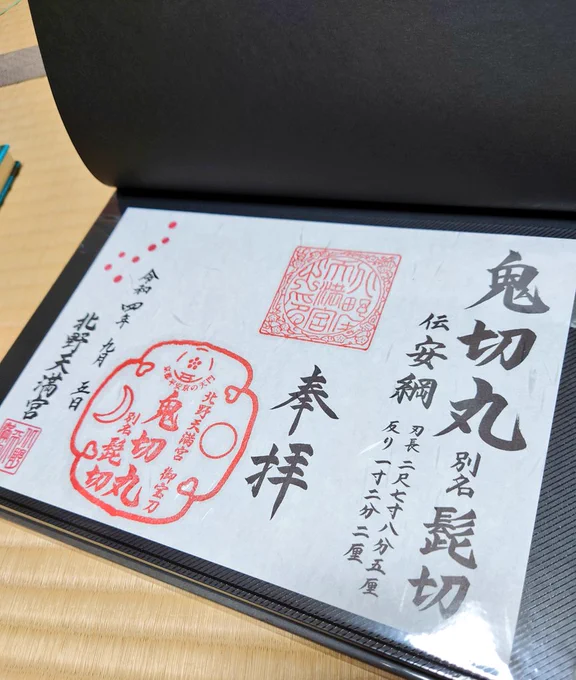 鬼切丸 別名 髭切
伝 安綱
刃長 二尺七寸八分五厘
反り 一寸二分二厘
奉拝
北野天満宮
御宝刀
鬼切丸
別名
髭切
令和四年 九月 五日
北野天満宮